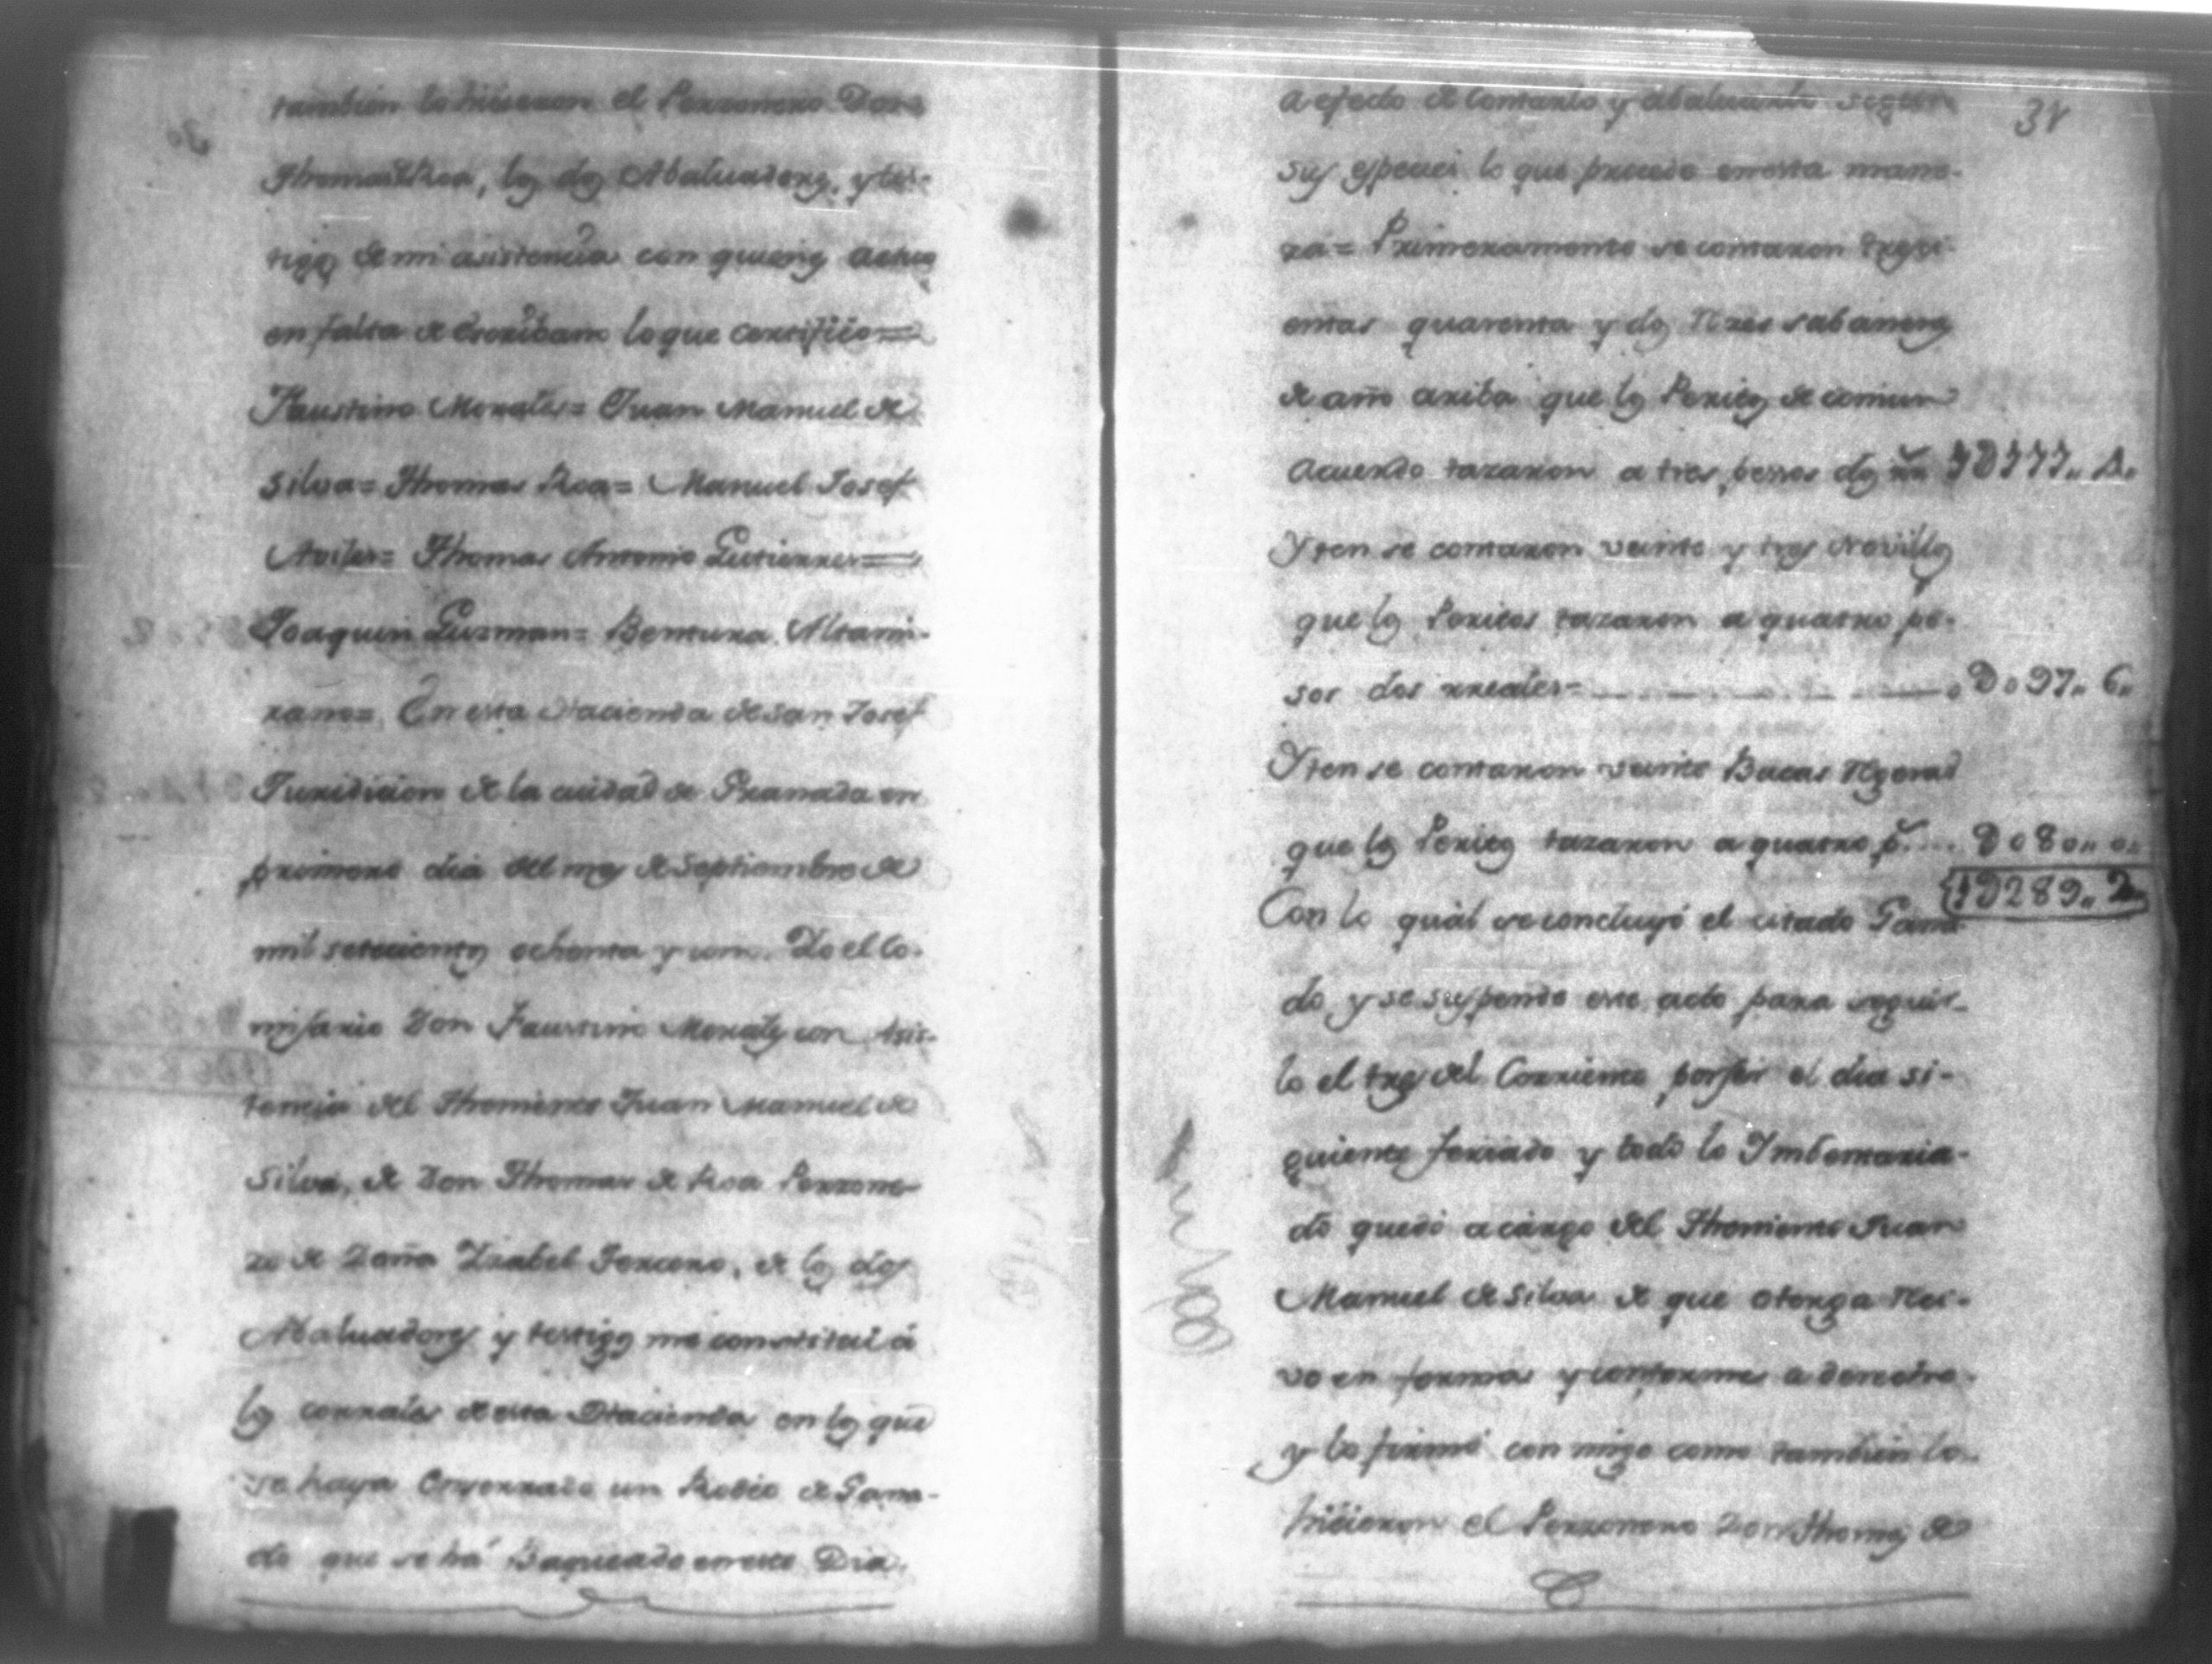 tambien lo hiseron el Perzonero Don
Thomas Roa, los dos Abaluadores, y tes-
tigos de mi asistencia con quienes actuo
en falta de Escribano lo que certifico=
Faustino Morales= Juan Manuel de
Silva= Thomas Roa= Manuel Josef
Aviles= Thomas Antonio Gutierrez=
Joaquin Guzman= Bentura Altami-
rano= En esta Hacienda de San Josef
Juridicion de la ciudad de Granada en
primero dia del mes de Septiembre de
mil setecientos ochenta y uno. Yo el Co-
misario Don Faustino Morales con Asis-
tencia del Theniente Juan Manuel de
Silva, de Don Thomas de Roa Perzone-
ro de Doña Yzabel Ferrero, de los dos
Abaluadores y testigos me constitui á
los corrales de esta Hacienda en los que
se haya Encorralado un Rodeo de Gana-
do que se há Baqueado en este Dia
a efecto de Contarlo y Abaluarlo segun
sus especies lo que procede en esta mane-
ra= Primeramente se contaron tresci-
entas quarenta y dos Rres sabaneras
de año arriba que los Peritos de comun
Acuerdo tazaron a tres pessos dos rr 1D111,,
Yten se contaron veinte y tres Novillos
que los Peritos tazaron a quatro pe-
sos dos rreales- D097,, 6,,
Yten se contaron veinte Bacas
que los Peritos tazaron a quatro p. D080,, 0,,
1D289,, 2
Con lo qual se concluyó el citado Gana
do, y se suspende este acto para seguir-
lo el tres del Corriente por ser el dia si-
guiente feriado y todo lo Imbentaria-
do quedó a cargo del Theniente Juan
Manuel de Silva de que otorga Reci-
vo en forma y conforme a derecho
y lo firmó con migo como tambien lo
hicieron el Perzonero Don Thomas de